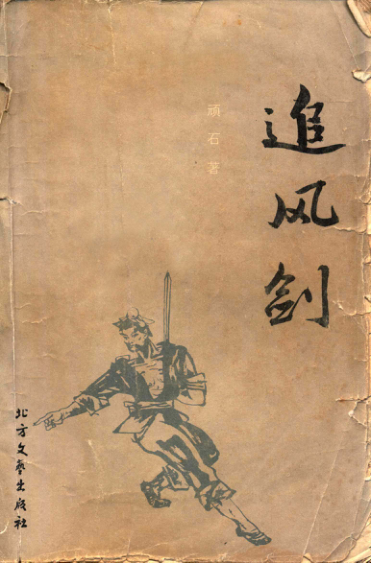 追风剑
顽石 著
北方文艺出版社